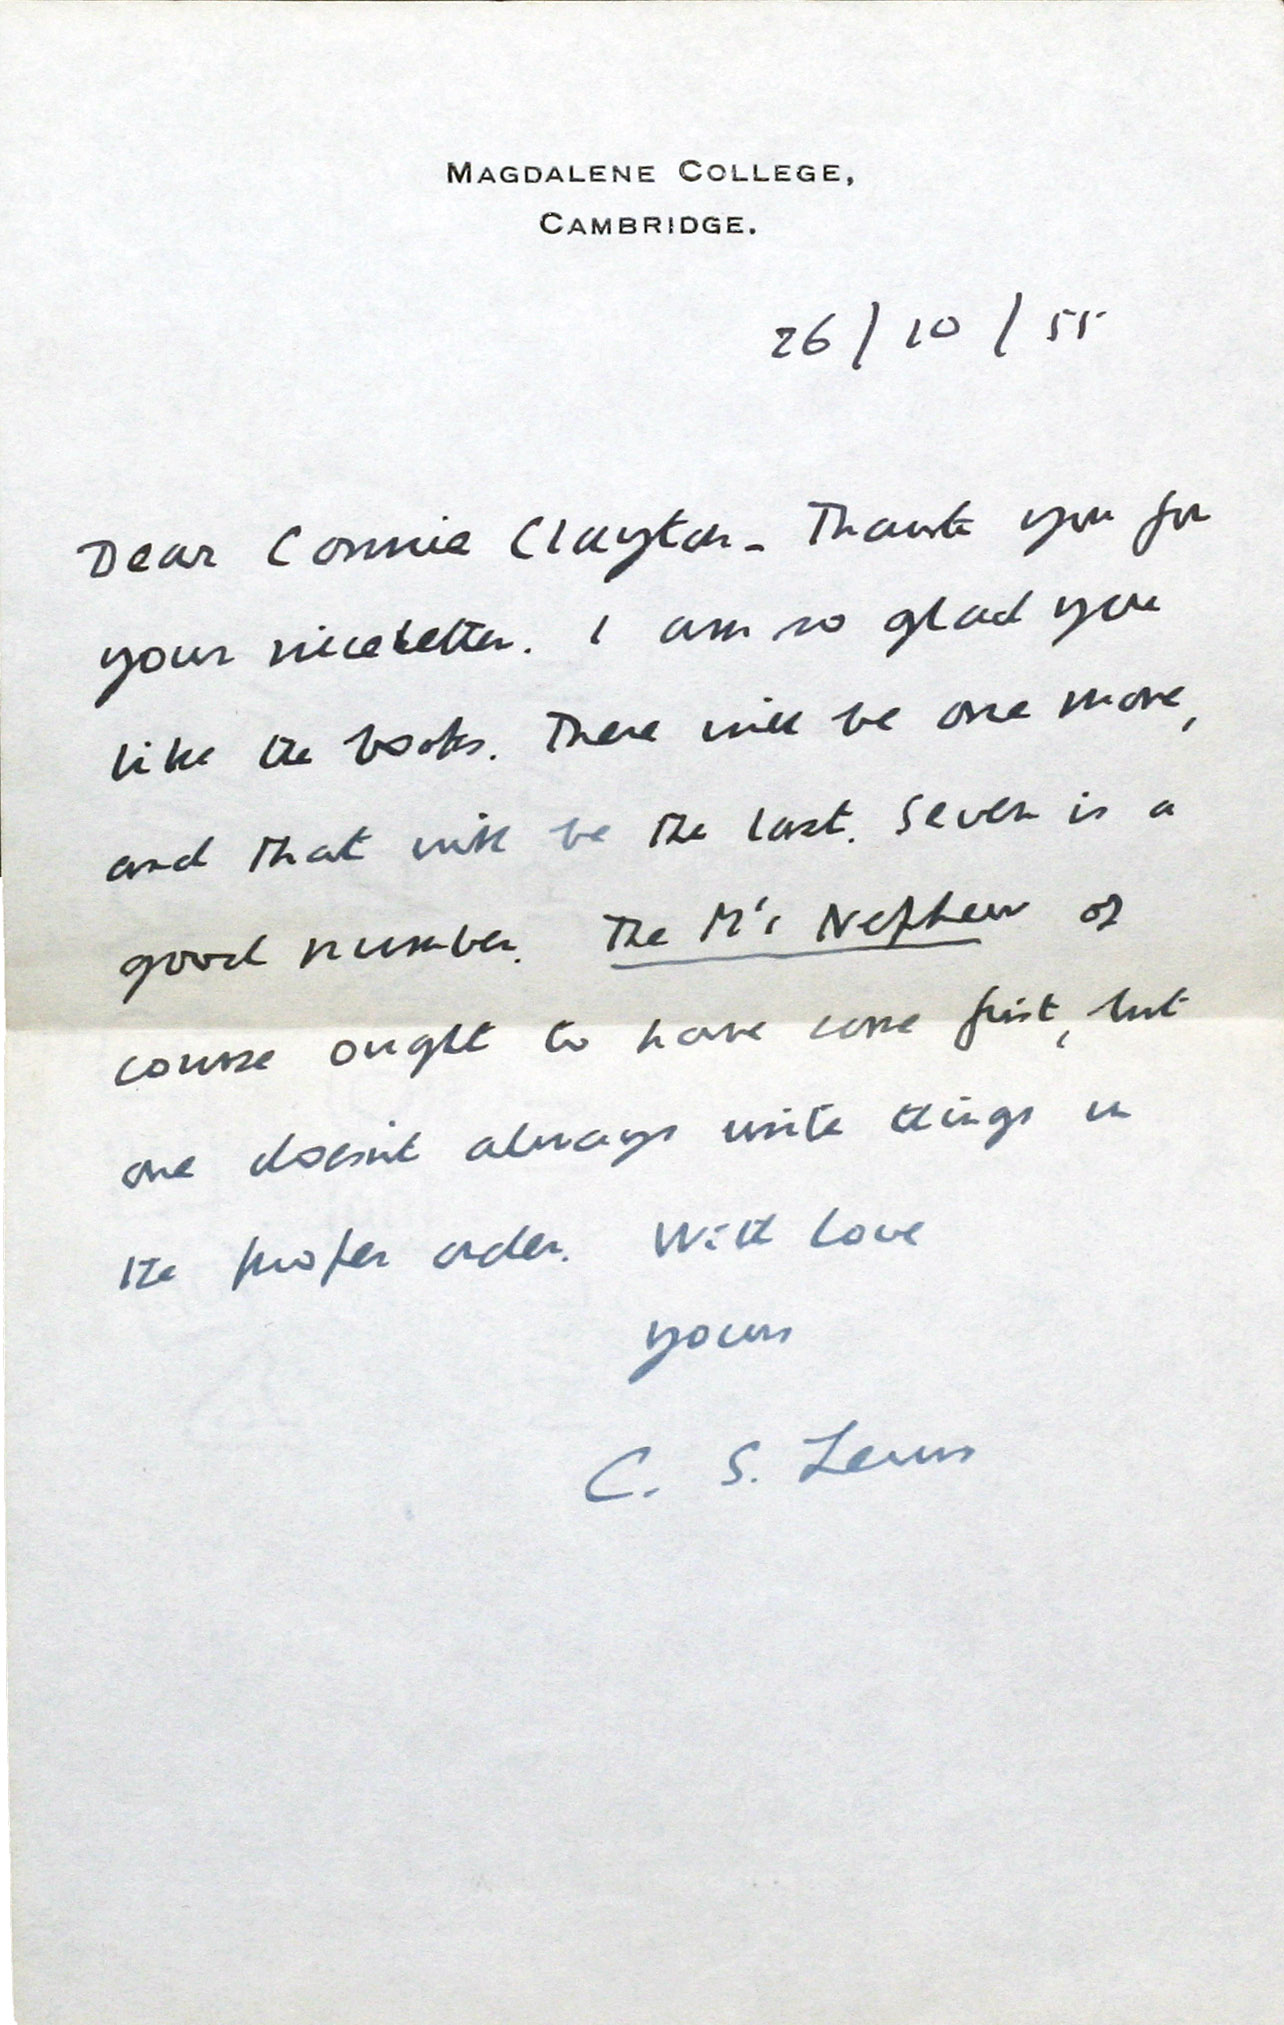 MAGDALENE COLLEGE,
CAMBRIDGE.
26/10/55
Dear Connie Clayton – Thank you for
your nice letter. I am so glad you
like the books. There will be one more,
and that will be the last. Seven is a
good number. The M's Nephew of
course ought to have come first, but
one doesn't always write things in
the proper order. With love
yours
C. S. Lewis